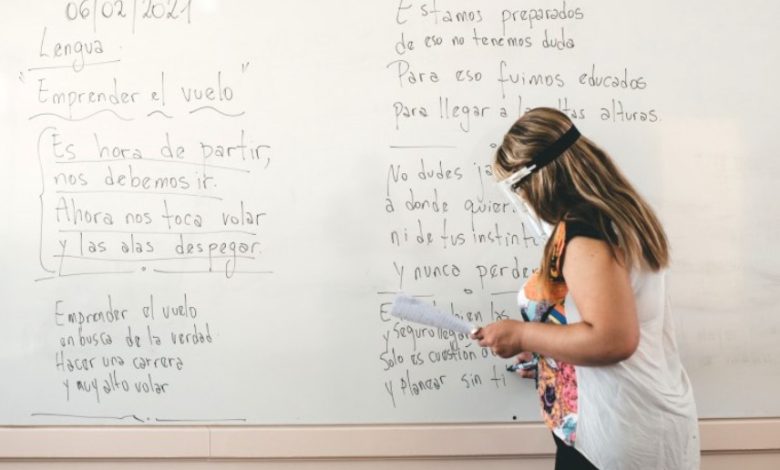 06/02/2021
Lengua
"Emprender el vuelo"
Es hora de partir,
nos debemos ir.
Ahora nos toca volar
y las alas despegar.
Emprender el vuelo
en busca de la verdad
Hacer una carrera
y muy alto volar
Estamos preparados
de eso no tenemos duda
Para eso fuimos educados
para llegar a altas alturas.
No dudes
a donde
ni de tus
y nunca
bien las
y seguro
Solo es cuestión
y planear sin ti